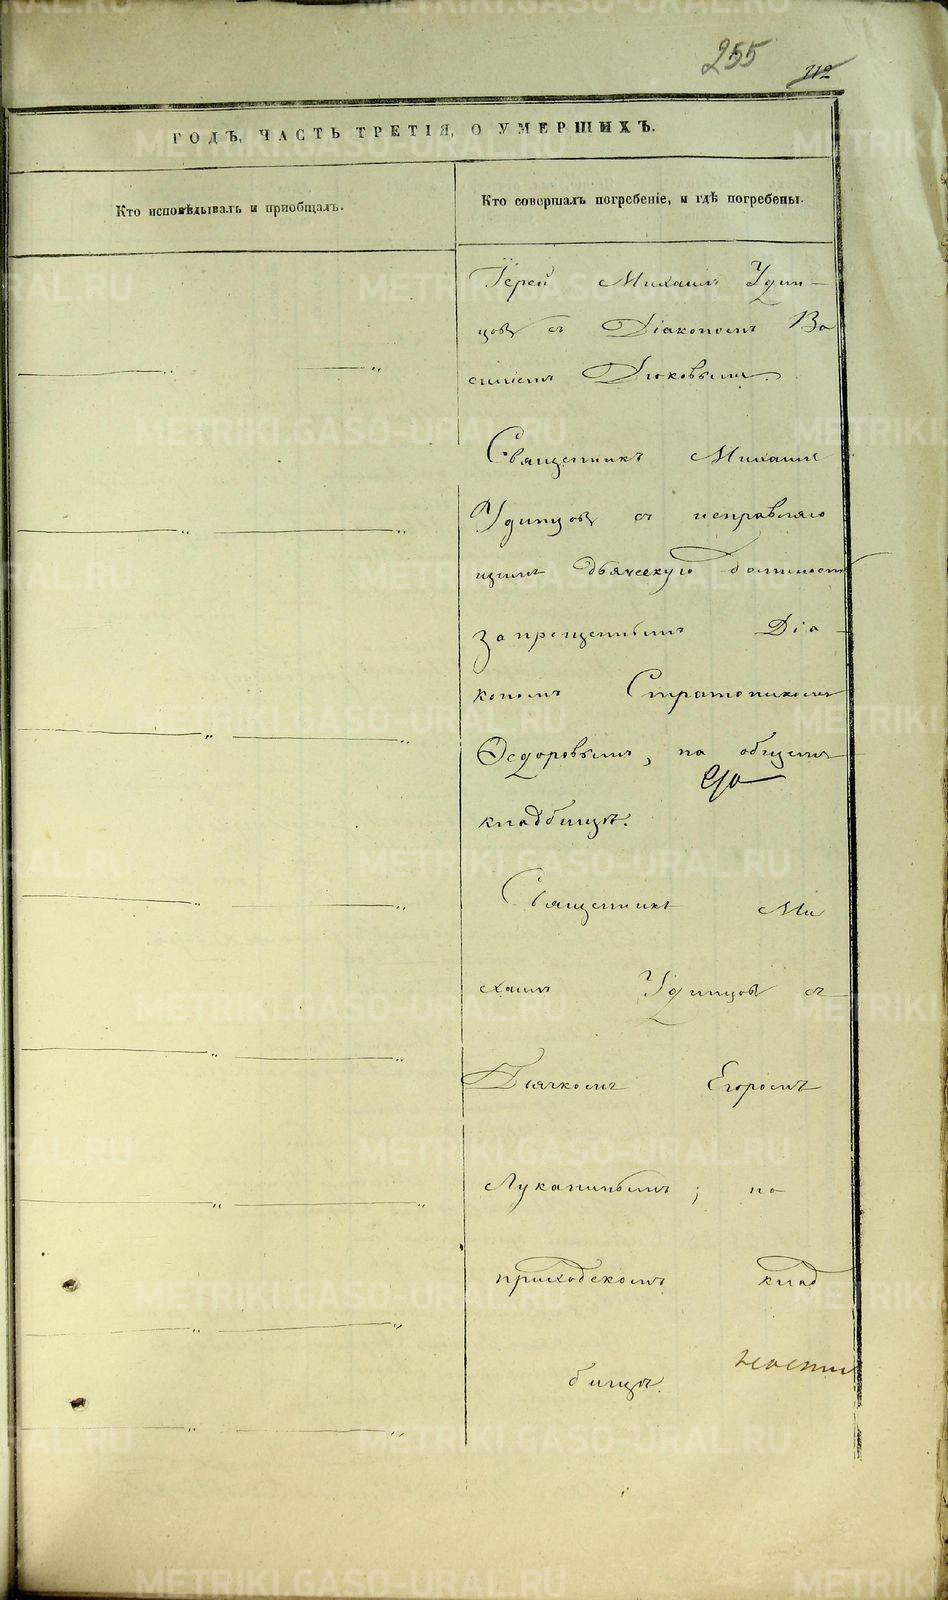 255
ГОДЪ, ЧАСТЬ ТРЕТІЯ, О УМЕРШИХЪ.
Кто исповѣдывалъ и приобщалъ.
Кто совершалъ погребеніе, и гдѣ погребены.
Іерей Михаилъ Удин-
цовъ съ Діакономъ Ва
силіемъ Дюковымъ.
Священникъ Михаилъ
Удинцовъ съ исправляю
щимъ дьяческую должность
запрещеннымъ Діа-
кономъ Стратоникомъ
Ѳедоровымъ, на общемъ
кладбищѣ.
Священникъ Ми
хаилъ Удинцовъ съ
Дьячкомъ Егоромъ
Луканинымъ; на
приходскомъ клад
бищѣ.
METRIKI.GASO-URAL.RU